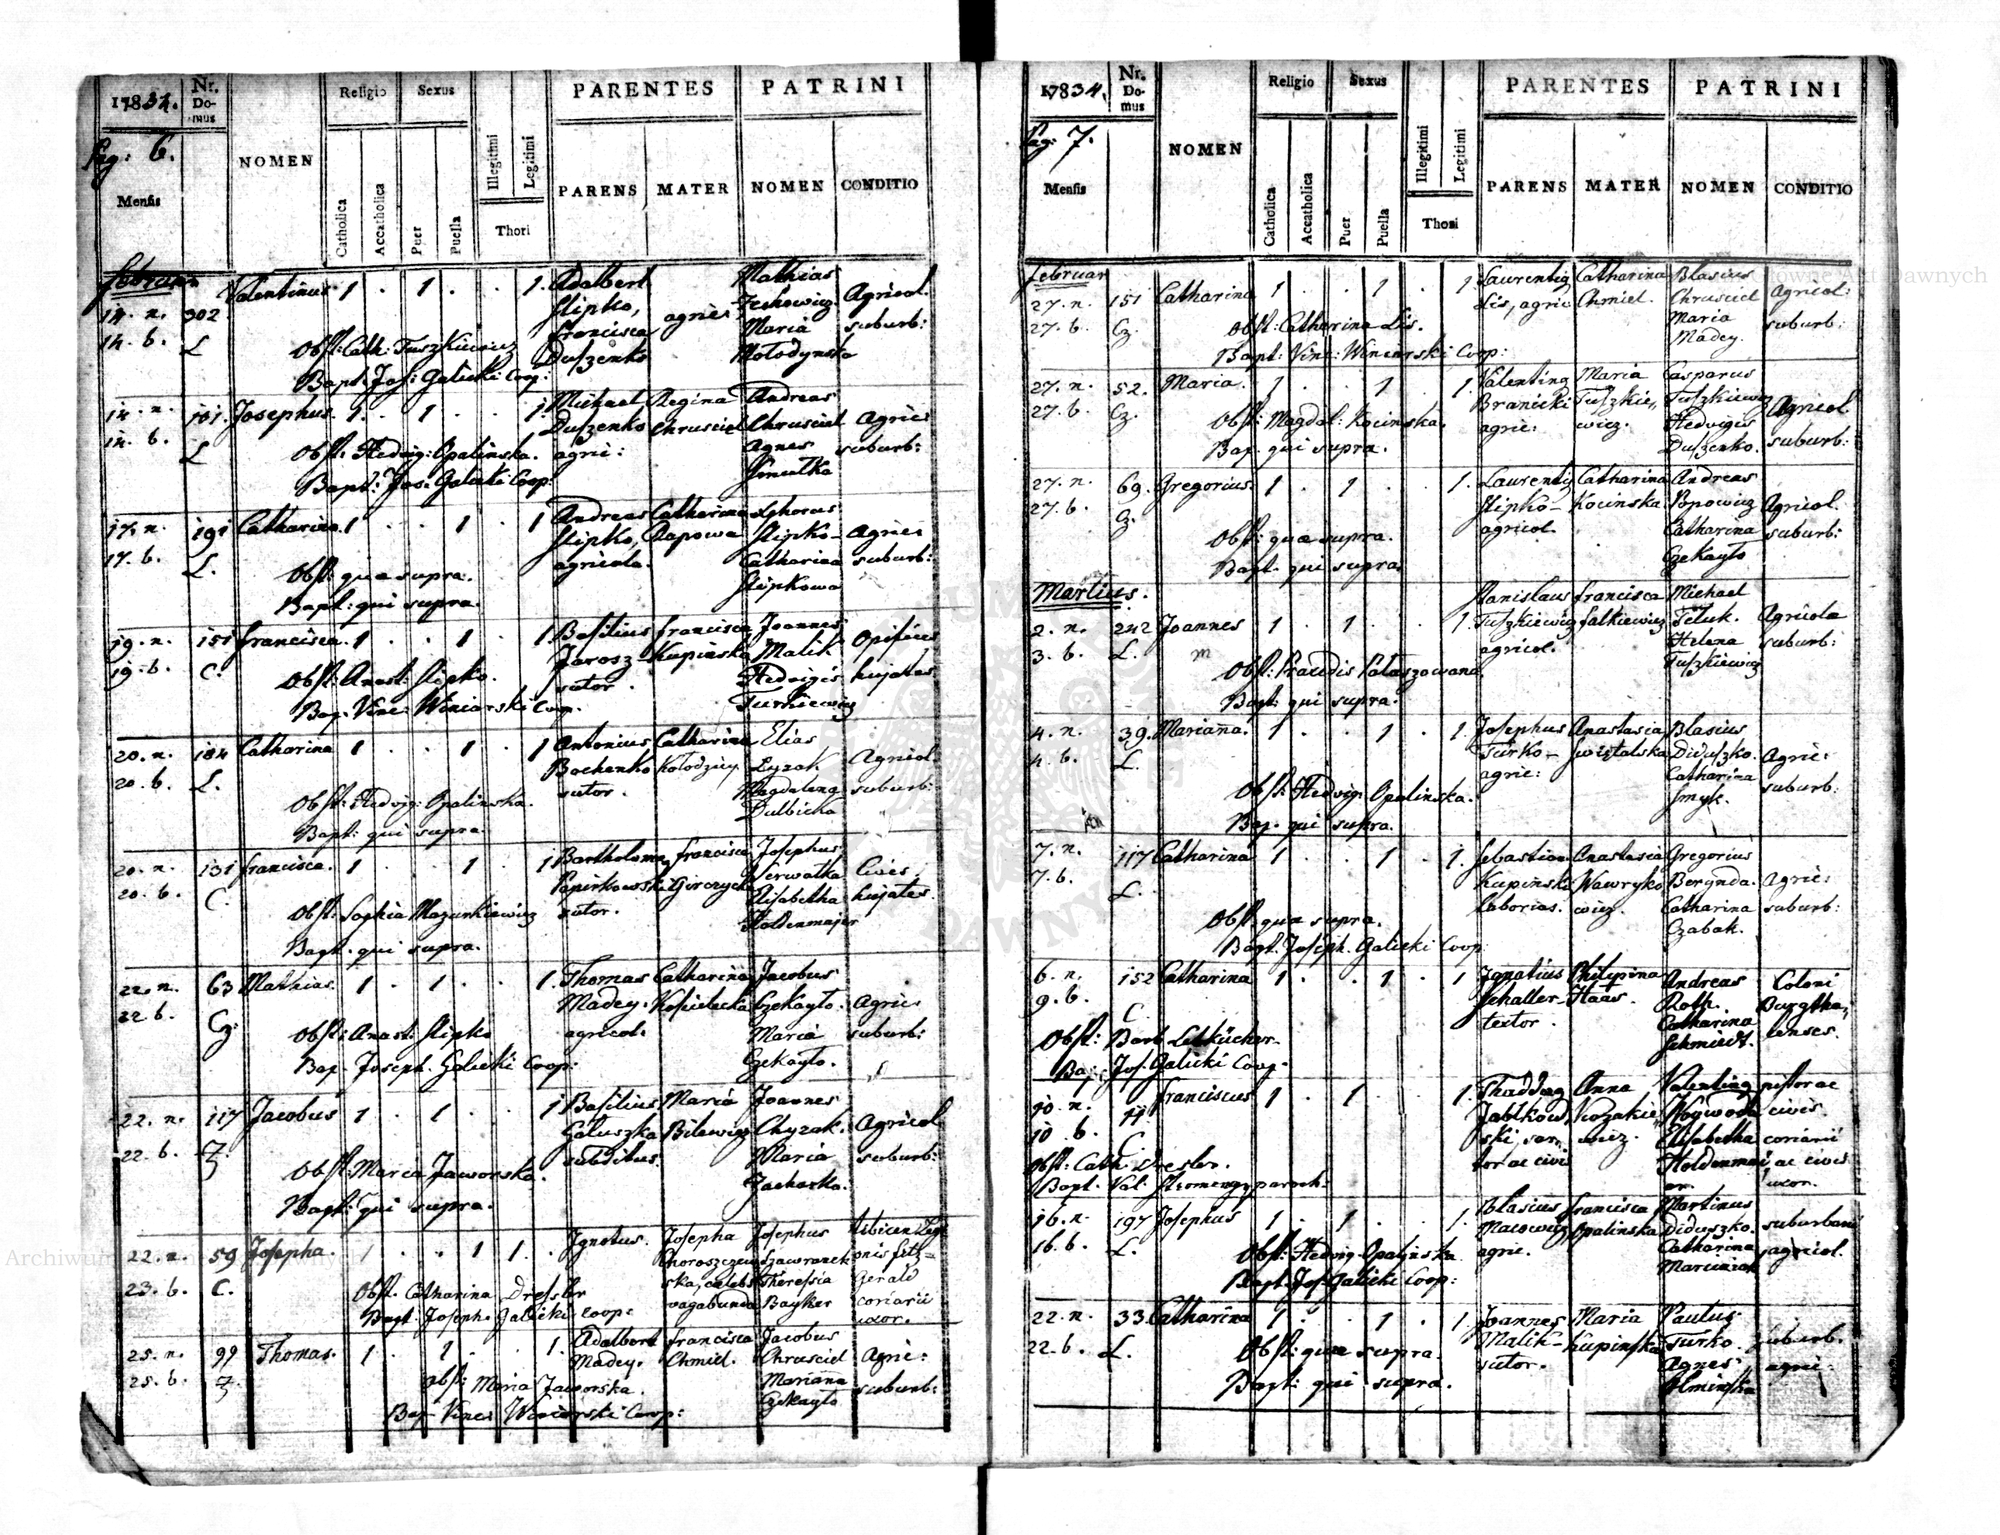 1834.
Nr. Do- mus
NOMEN
Religio
Sexus
PARENTES
PATRINI
Pag: 6.
Mensis
Catholica
Accatholica
Puer
Puella
Illegitimi
Legitimi
Thori
PARENS
MATER
NOMEN
CONDITIO
Februar
14. n. 302 Valentinus 1 . 1 . . 1. Adalbert Mathias
14. b. L Slipko, agries Agricol.
Francisca Maria suburb:
Obst: Cath: Tuszkiewicz Duszenko
Bapt: Jos: Galicki Coop:
14. n. 101. Josephus 1. . 1 . . 1 Michael Regina Andreas
14. b. L Duszenko Chrusciel Chrusciel Agries
Obst: Hedvig: Opalinska. agric: Agnes suburb:
Bapt: Jos: Galicki Coop: Smutka
17. n. 191 Catharina 1 . . 1 . 1 Andreas Catharina
17. b. L. Slipko, Slipko- Agries
agricola. Catharina suburb:
Obst: quae supra. Slipkowa
Bapt: qui supra.
19. n. 151 Francisca. 1 . . 1 . 1. Basilius Francisca Joannes
19. b. C. Jarosz- Malik
Obst: Anast: Slipko. sutor. Hedvigis hujates
Bap. Vinc: Winiarski Coop.
20. n. 184 Catharina 1 . . 1 . 1 Antonius Catharina Elias
20. b. L. Bochenko Kolodziey. Lyzak Agricol
Obst: Hedvig: Opalinska. sutor. Magdalena suburb:
Bapt: qui supra.
20. n. 131 Francisca. 1 . . 1 . 1 Francisca Josephus
20. b. C. Cives
Obst: Sophia Mazurkiewicz sutor. Elisabetha hujates.
Bapt. qui supra. Holdenmajer
22. n. 63 Mathias. 1 . 1 . . 1. Thomas Catharina Jacobus
22 b. Cz. Madey. Czekaylo. Agries
Obst: Anast: Slipko agricol. Maria suburb:
Bap. Joseph. Galicki Coop: Czekaylo.
22. n. 117 Jacobus 1 . 1 . . 1 Basilius Maria Joannes
22. b. Z Galuszka Bilewicz Chyzak. Agricol
Obst: Maria Jaworska. subditus. Maria suburb:
Bapt: qui supra.
22. n. 59 Josepha. 1 . . 1 1 . Ignotus. Josepha Josephus
23. b. C. Obst: Catharina Dressler vagabunda Bayker coriarii
Bapt. Joseph. Galicki Coop: uxor.
25. n. 99 Thomas. 1 . 1 . . 1. Adalbert Francisca Jacobus
25. b. Z. Madey. Chmiel. Chrusciel Agric:
Obst: Maria Jaworska. Marianna suburb:
Bap. Vinc: Winiarski Coop: Czekaylo
1834.
Nr. Do- mus
NOMEN
Religio
Sexus
PARENTES
PATRINI
Pag: 7.
Mensis
Catholica
Accatholica
Puer
Puella
Illegitimi
Legitimi
Thori
PARENS
MATER
NOMEN
CONDITIO
Februar
27. n. 151 Catharina 1 . . 1 . 1 Laurentius Catharina Blasius
27. b. Cz. Lis, agric Chmiel. Chrusciel Agricol:
Obst: Catharina Lis. Maria suburb:
Bapt: Vinc: Winiarski Coop: Madey.
27. n. 52. Maria. 1 . . 1 . 1. Valentinus Maria Casparus
27. b. Cz. Branicki Tuszkie, Tuszkiewicz Agricol
Obst: Magdal: Kocinska. agric: wicz. Hedvigis suburb:
Bap. qui supra. Duszenko.
27. n. 69. Gregorius. 1 . 1 . . 1. Laurentius Catharina Andreas
27. b. Cz. Slipko- Kocinska Popowicz Agricol.
Obst: quae supra. agricol. Catharina suburb:
Bapt. qui supra. Czekaylo
Martius.
2. n. 242 Joannes 1 . 1 . . 1. Stanislaus Francisca Michael
3. b. L. Tuszkiewicz Falkiewicz Feluk. Agricola
agricol. Helena suburb:
Tuszkiewicz
Bapt: qui supra.
4. n. 39. Marianna. 1 . . 1 . 1. Josephus Anastasia Blasius
4. b. L. Turko- Diduszko. Agric:
agric: Catharina suburb:
Obst: Hedvig. Opalinska. Smyk.
Bap. qui supra.
7. n. 117 Catharina 1 . . 1 . 1. Sebastian Anastasia Gregorius
7. b. L. Kupinski Wawryko Berynda. Agric:
Obst: quae supra. laborias. wicz. Catharina suburb:
Bapt. Joseph. Galicki Coop Czabak.
6. n. 152 Catharina 1 . . 1 . 1 Ignatius Philipina Andreas Coloni
9. b. C Schaller- Haas. Roth.
Obst: Barb textor. Catharina
Bap: Jos. Galicki Coop: Schmiedt.
10. n. Franciscus 1 . 1 . . 1. Anna Valentinus pistor ac
10 b. C Jablkow, Kozakie, Woywoda civis.
ski, sar, wicz. Elisabetha coriarii
Obst: Cath: Dresler. tor ac civis Holdenmai, ac civis
Bapt. Val: paroch: er. uxor.
16. n. 197 Josephus 1 . 1 . . 1. Blasius Francisca Martinus
16. b. L. Opalinska Diduszko. suburbani
Obst: Hedvig. Opalinska agric. Catharina agricol.
Bapt. Jos. Galicki Coop:
22. n. 33. Catharina 1 . . 1 . 1. Joannes Maria Paulus
22. b. L. Malik- Kupinska Turko. suburb.
Obst: quae supra. sutor. Agnes agric:
Bapt: qui supra.